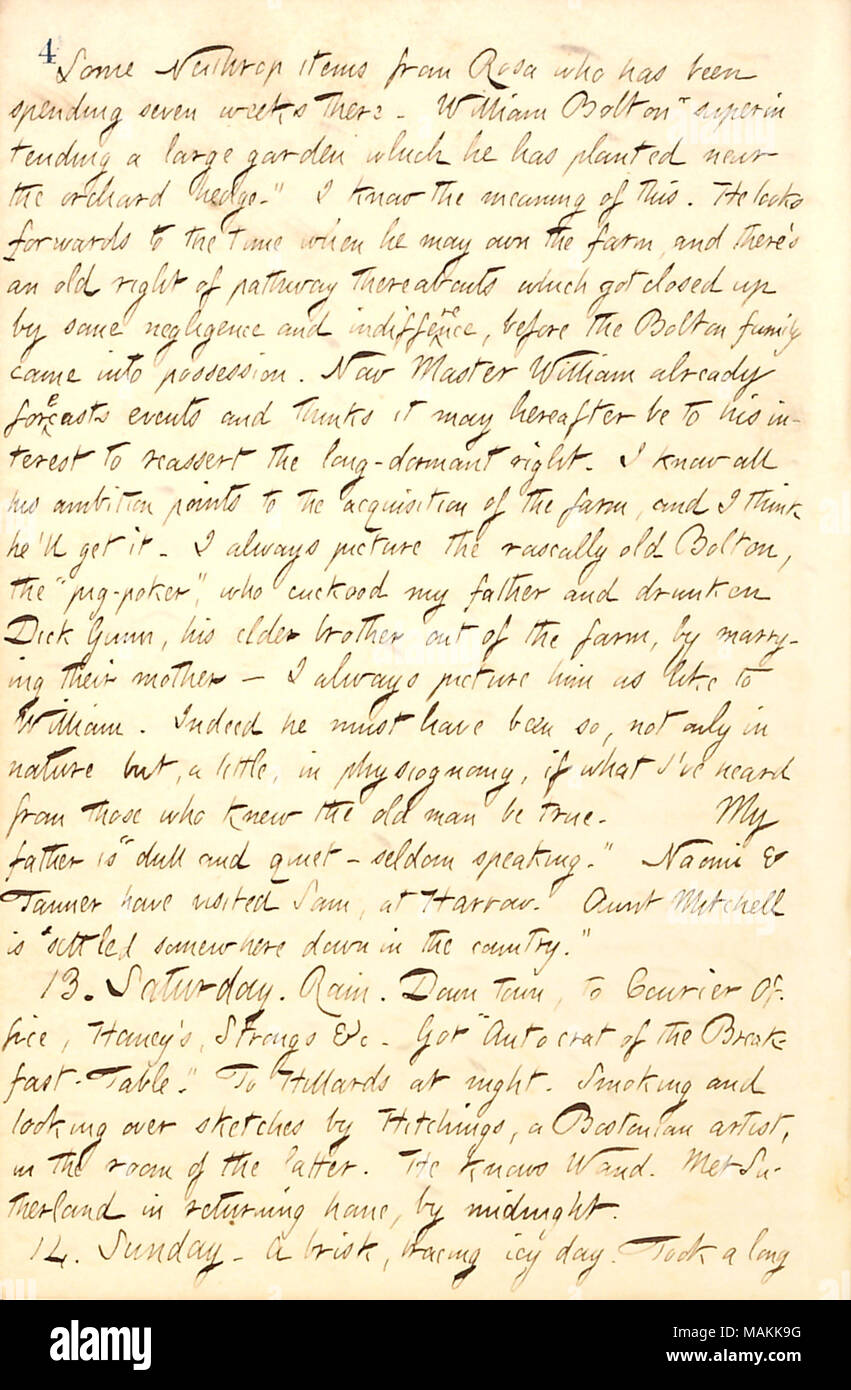 4
Some Neithrop items from Rosa who has been
spending seven weeks there. William Bolton "superin
tending a large garden which he has planted near
the orchard hedge." I know the meaning of this. He looks
forwards to the time when he may own the farm, and there's
an old right of pathway thereabouts which got closed up
by some negligence and indifference, before the Bolton family
came into possession. Now Master William already
forecasts events and thinks it may hereafter be to his in-
terest to reassert the long-dormant right. I know all
his ambition points to the acquisition of the farm, and I think
he'll get it. I always picture the rascally old Bolton,
the "pig-poker", who cuckood my father and drunken
Dick Gunn, his elder brother out of the farm, by marry-
ing their mother — I always picture him as like to
William. Indeed he must have been so, not only in
nature but, a little, in physiognomy, if what I've heard
from those who knew the old man be true. My
father is "dull and quiet - seldom speaking." Naomi &
Tanner have visited Sam, at Harrow. Aunt Mitchell
is "settled somewhere down in the country."
13. Saturday. Rain. Down town, to Courier Of-
fice, Haney's, Strongs &c. Got "Autocrat of the Break-
fast-Table." To Hillards at night. Smoking and
looking over sketches by Hitchings, a Bostonian artist,
in the room of the latter. He knows Wand. Met Su-
therland in returning home, by midnight.
14. Sunday. A brisk, bracing icy day. Took a long
alamy
Image ID: MAKK9G
www.alamy.com